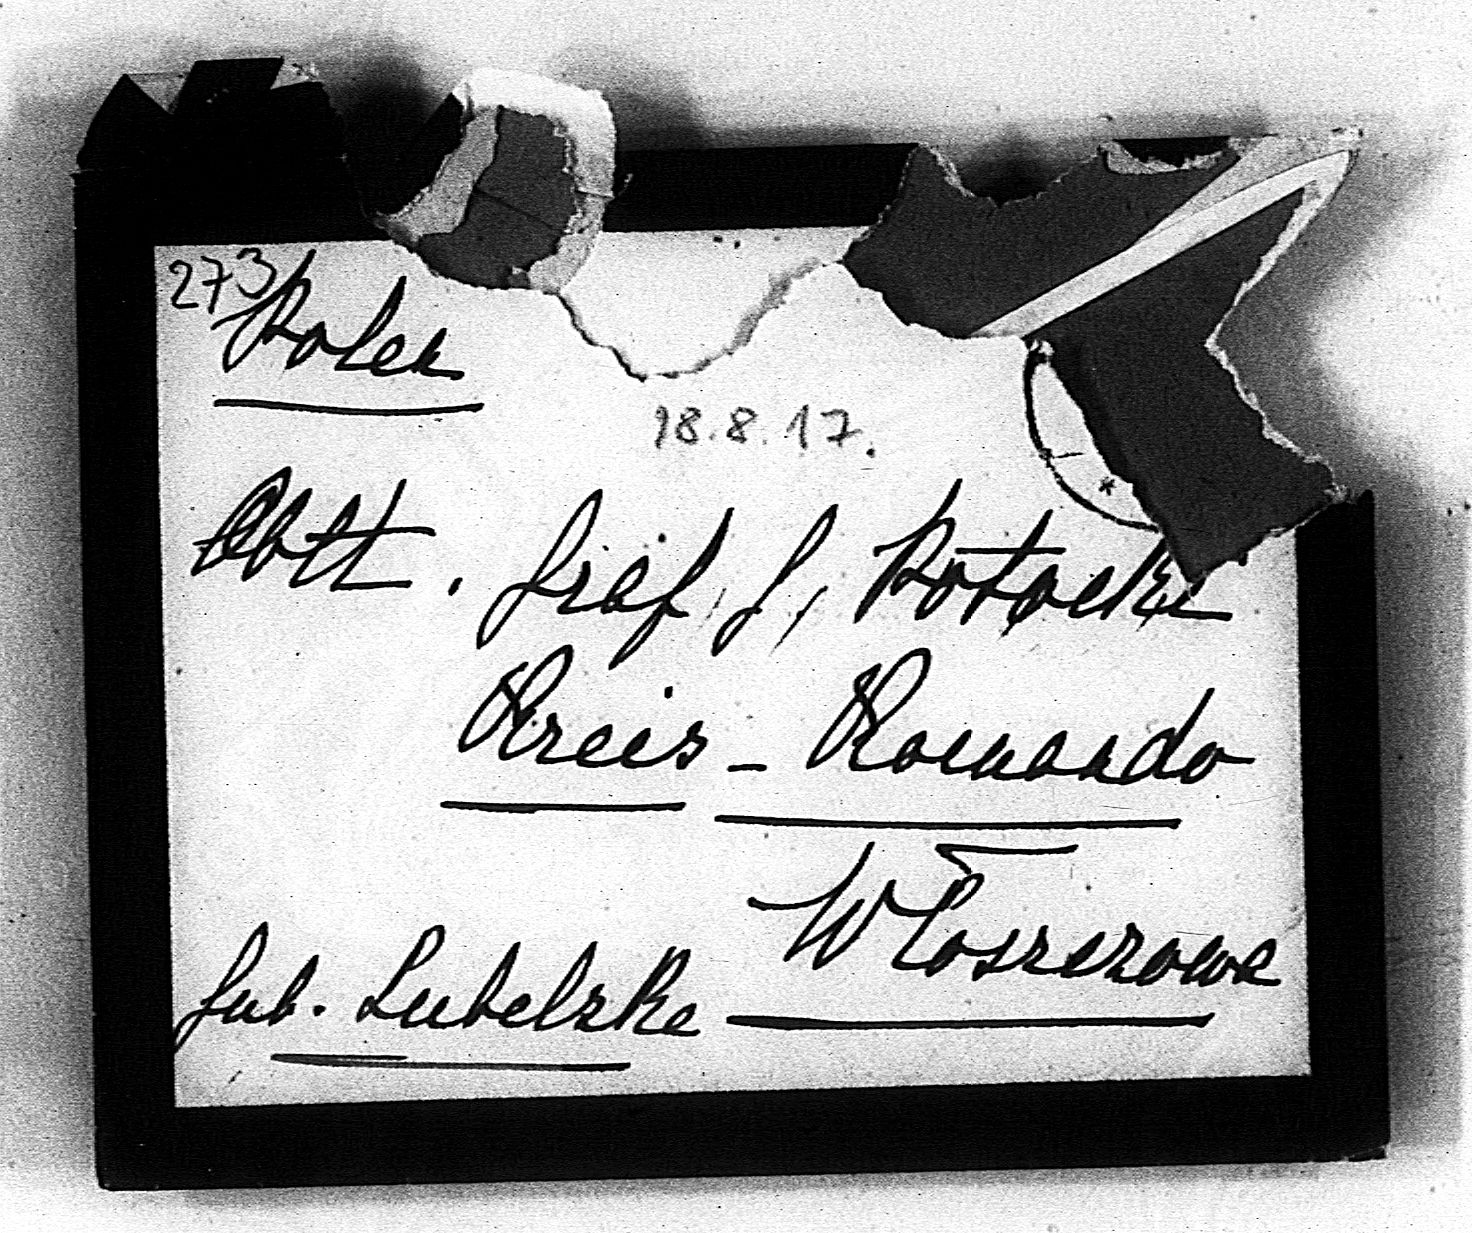 273
Polen
18.8.17.
Oblt. Graf J. Potocki
Kreis - Komando
Włoszczowa
Gub. Lubelske